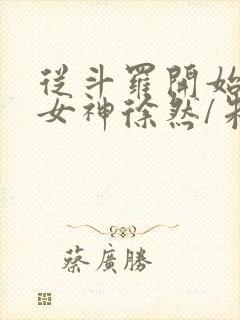 從斗羅開始
女神徐然/朱
蔡廣勝